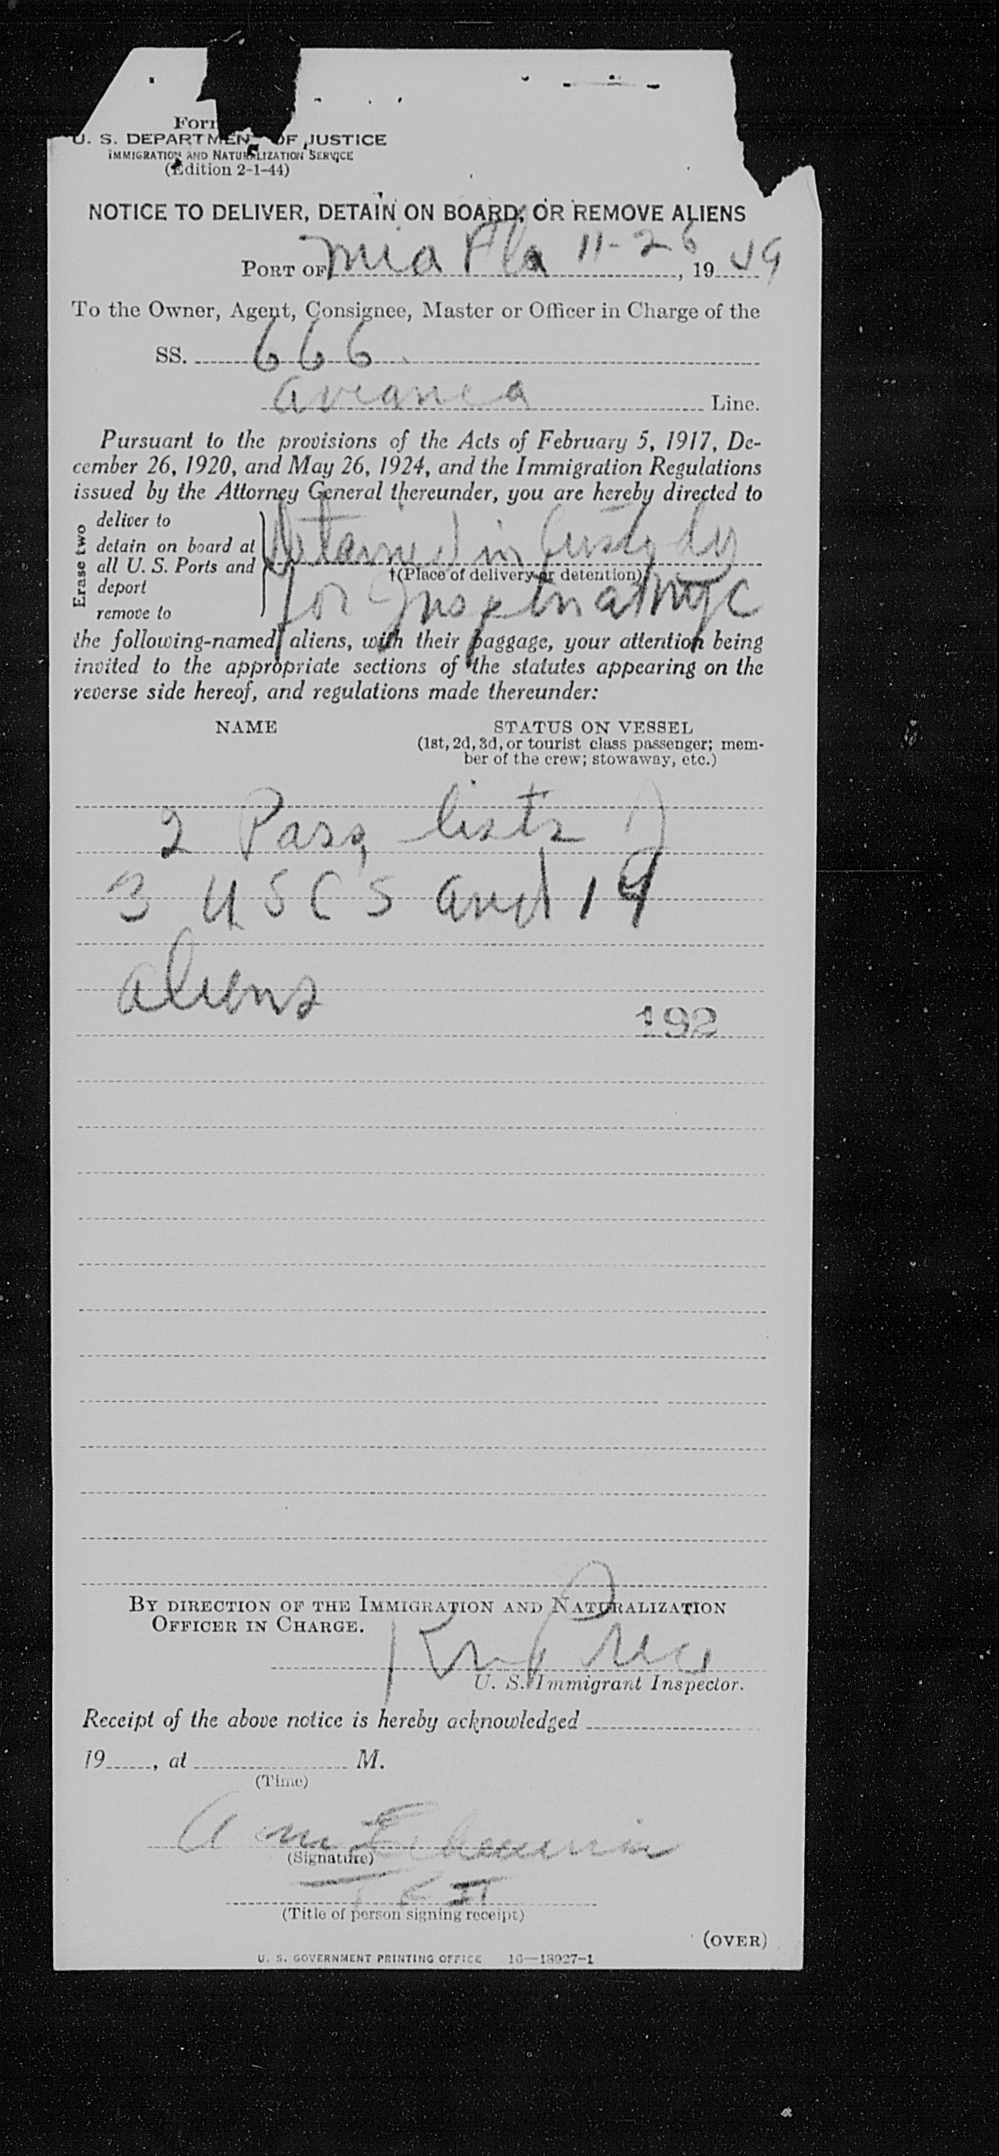 Form
U. S. DEPARTMENT OF JUSTICE
IMMIGRATION AND NATURALIZATION SERVICE
(Edition 2-1-44)
NOTICE TO DELIVER, DETAIN ON BOARD, OR REMOVE ALIENS
PORT OF Mia Fla 11-26, 19 49
To the Owner, Agent, Consignee, Master or Officer in Charge of the
SS. 666
Avianca Line.
Pursuant to the provisions of the Acts of February 5, 1917, De-
cember 26, 1920, and May 26, 1924, and the Immigration Regulations
issued by the Attorney General thereunder, you are hereby directed to
Erase two
deliver to
detain on board at
all U. S. Ports and
deport
remove to
Detained in Custody
†(Place of delivery or detention)
for at NYC
the following-named aliens, with their baggage, your attention being
invited to the appropriate sections of the statutes appearing on the
reverse side hereof, and regulations made thereunder:
NAME STATUS ON VESSEL
(1st, 2d, 3d, or tourist class passenger; mem-
ber of the crew; stowaway, etc.)
2 Pass, lists
3 USCS and 14
aliens
192
BY DIRECTION OF THE IMMIGRATION AND NATURALIZATION
OFFICER IN CHARGE.
U. S. Immigrant Inspector.
Receipt of the above notice is hereby acknowledged
19, at M.
(Time)
A m
(Signature)
(Title of person signing receipt)
(OVER)
U. S. GOVERNMENT PRINTING OFFICE 16—18927-1